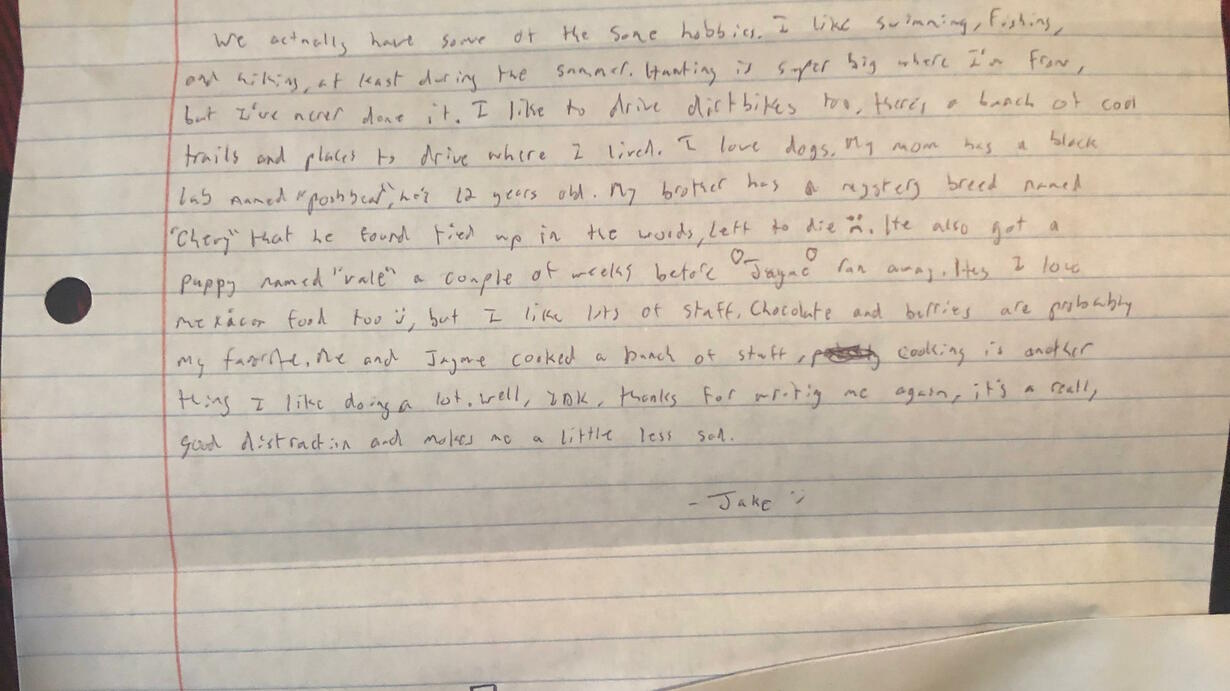 We actually have some of the same hobbies. I like swimming, fishing,
and hiking, at least during the summer. Hunting is super big where I'm from,
but I've never done it. I like to drive dirtbikes too, theres a bunch of cool
trails and places to drive where I lived. I love dogs. My mom has a black
lab named "poohbear", he's 12 years old. My brother has a mystery breed named
"Chevy" that he found tied up in the woods, left to die :(. He also got a
puppy named "vale" a couple of weeks before ♡Jayme♡ ran away. Yes I love
mexican food too :), but I like lots of stuff. Chocolate and berries are probably
my favorite. Me and Jayme cooked a bunch of stuff, cooking is another
thing I like doing a lot. well, IDK, thanks for writing me again, it's a really
good distraction and makes me a little less sad.
- Jake :)